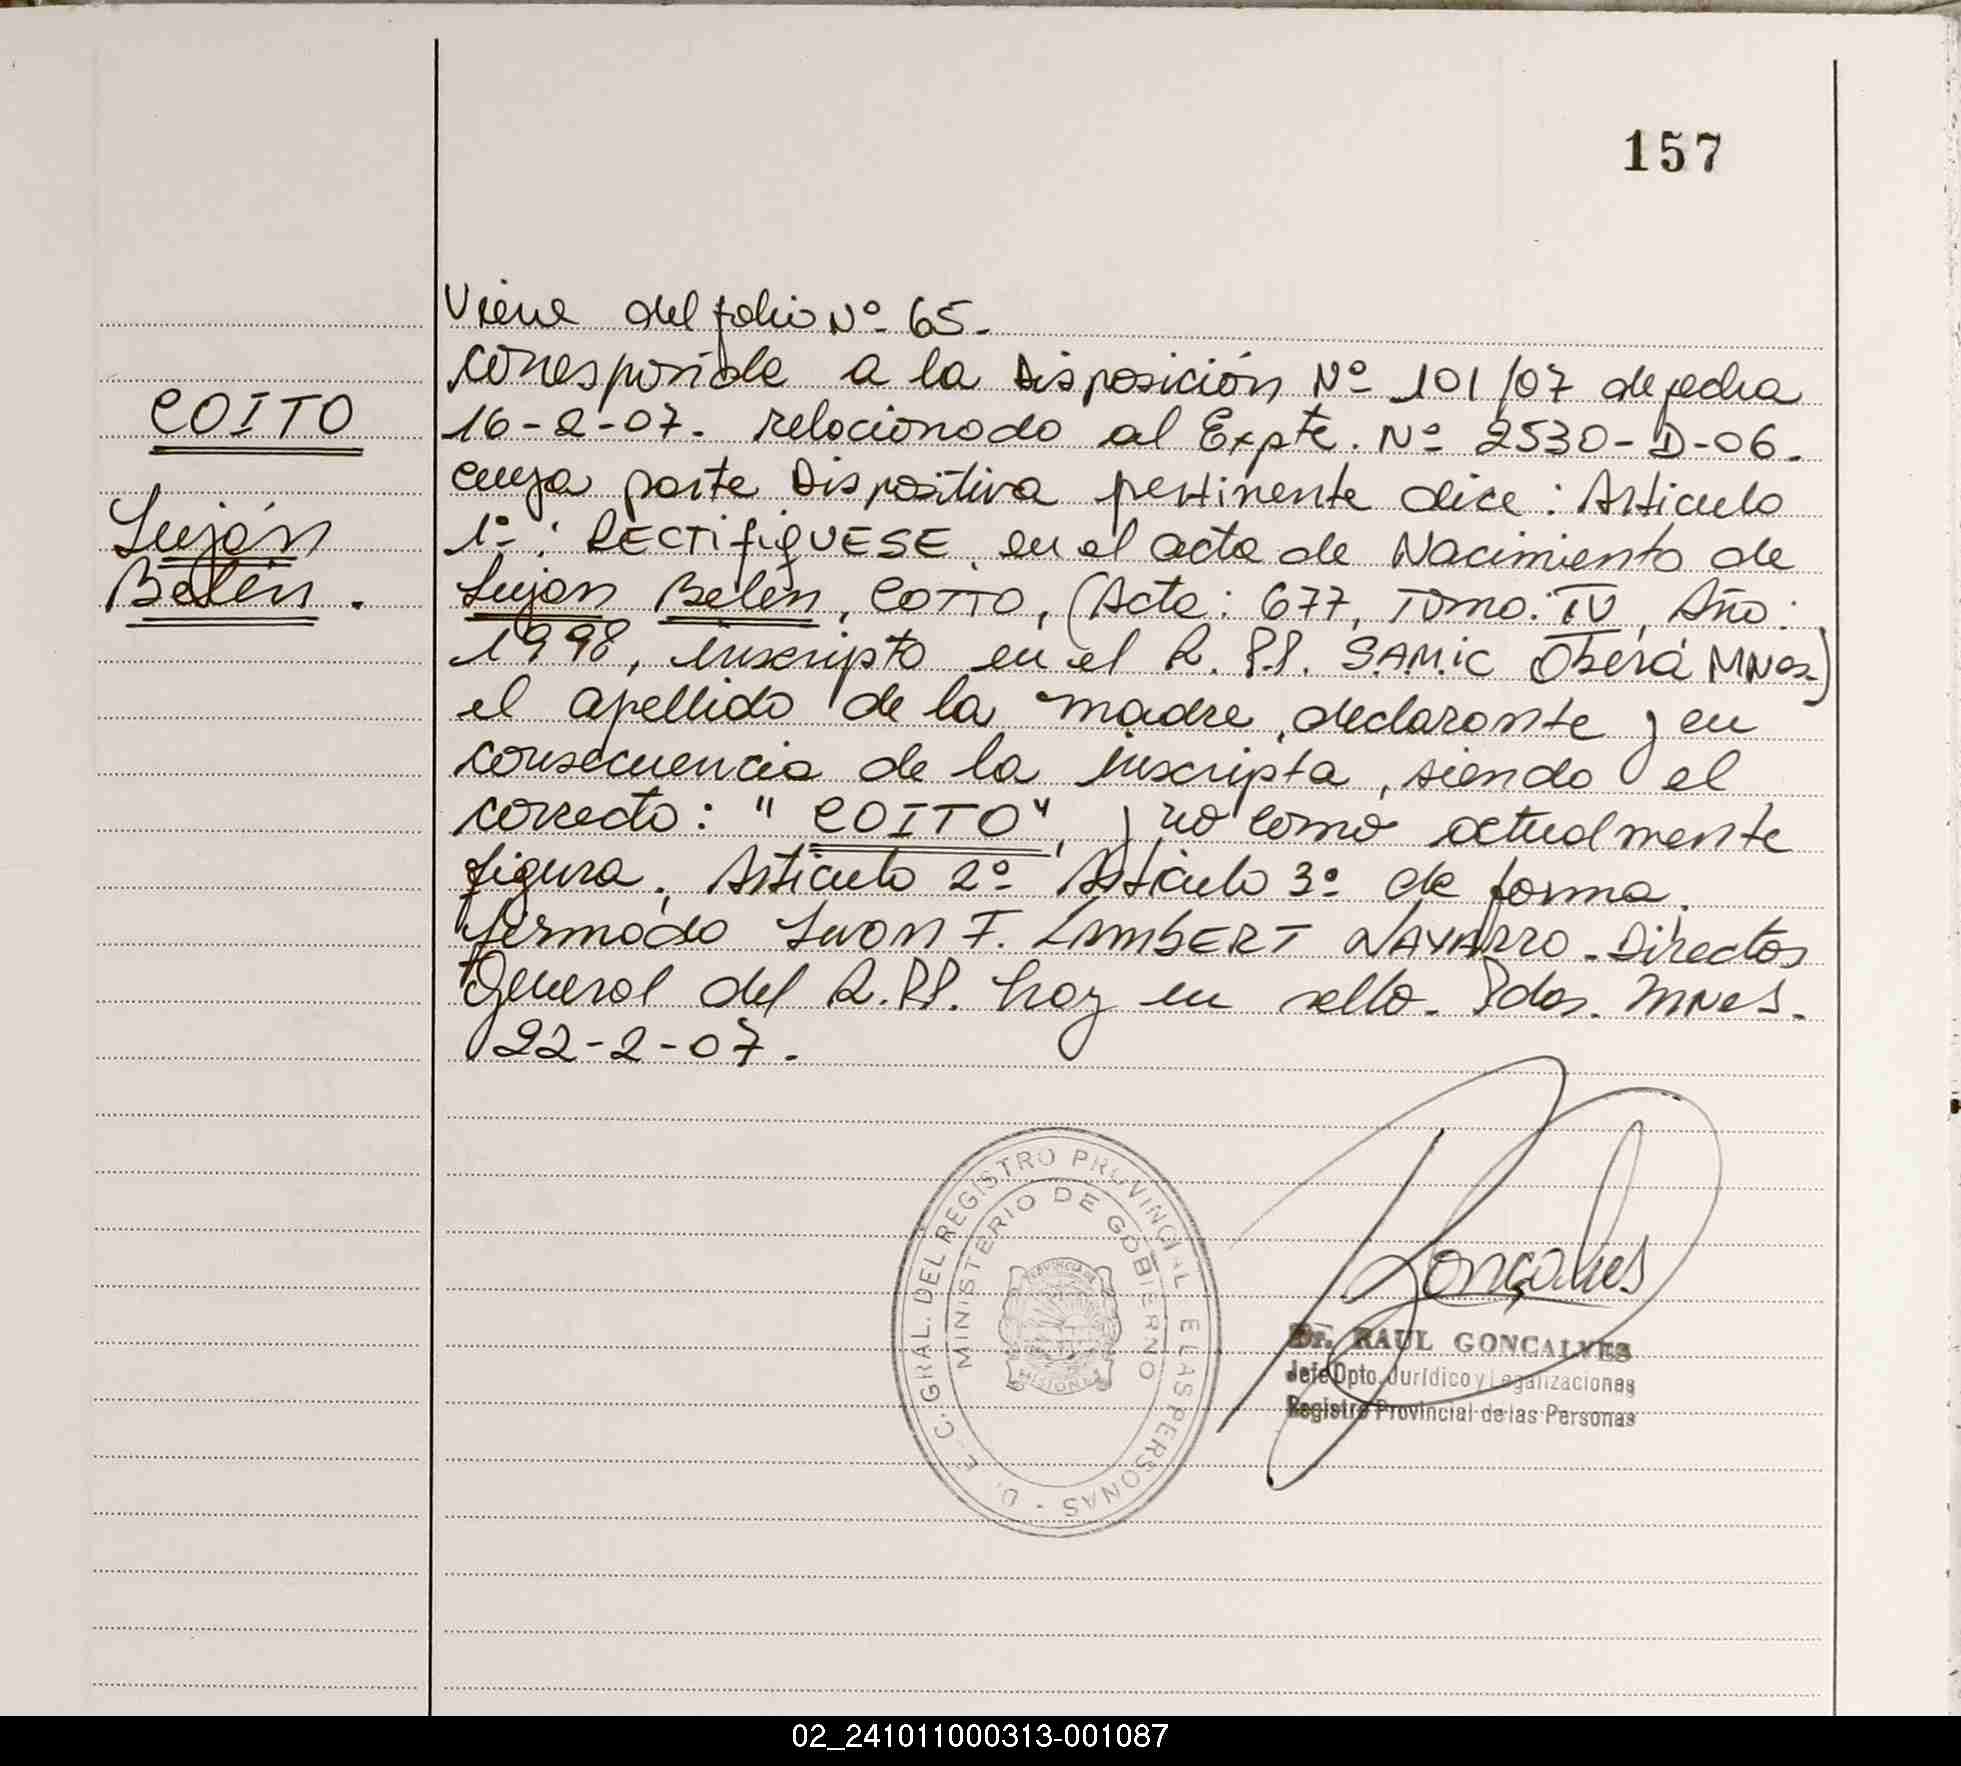 157
Viene del folio Nº 65.
COITO
Luján
Belén.
corresponde a la Disposición Nº 101/07 de fecha
16-2-07. relacionado al Expte. Nº 2530-D-06.
cuya parte Dispositiva pertinente dice: Articulo
1º: RECTifiQUESE, en el acta de Nacimiento de
Lujan Belén, COTTO, (Acta: 677, Tomo: IV, Año:
1998, inscripta en el R.P.P. SAMIC Oberá MNes.)
el apellido de la madre, declarante y en
consecuencia de la inscripta, siendo el
correcto: "COITO", y no como actualmente
figura. Articulo 2º Articulo 3º de forma.
firmado Juan F. LAMBERT NAVARRO. Director
General del R.P.P. hay un sello. Pdas. MNes.
22-2-07.
D. E. C. GRAL. DEL REGISTRO PROVINCIAL E LAS PERSONAS
MINISTERIO DE GOBIERNO
PROVINCIA DE
MISIONES
Gonçalves
Dr. RAUL GONCALVES
Jefe Dpto. Jurídico y Legalizaciones
Registro Provincial de las Personas
02_241011000313-001087